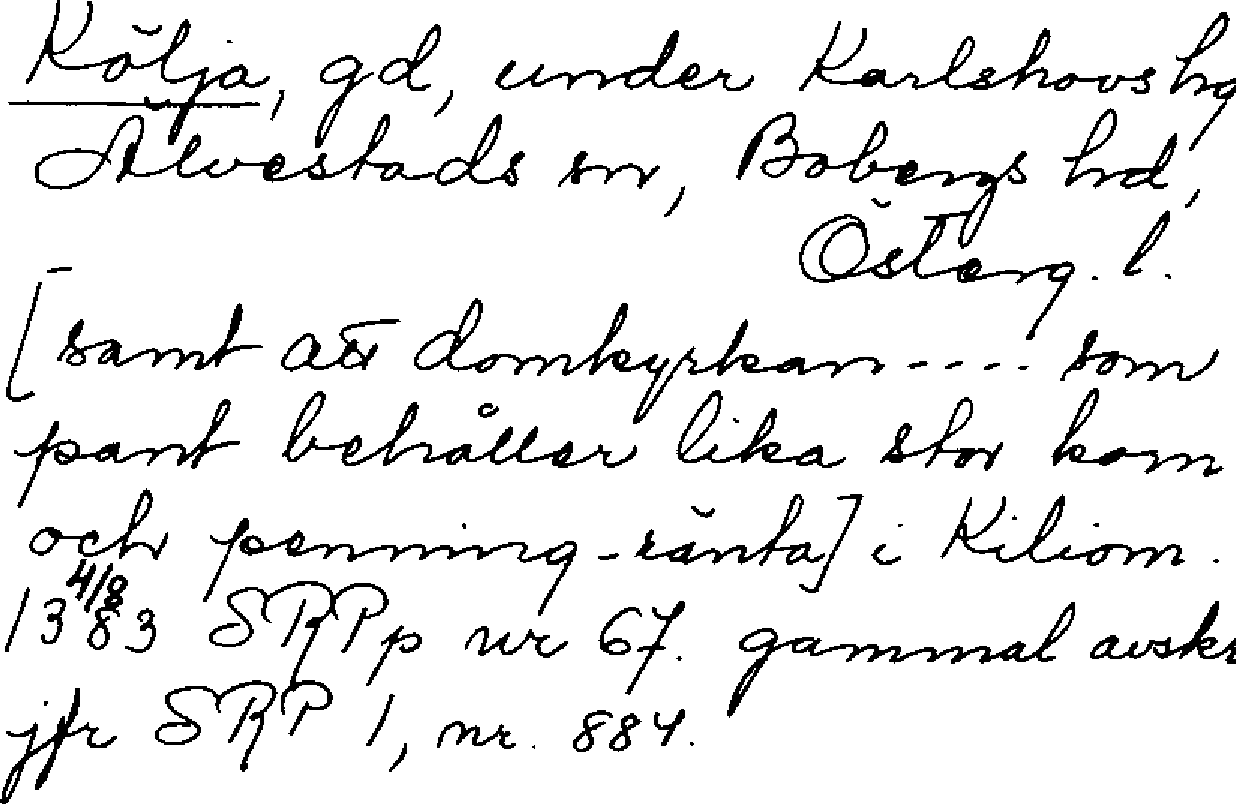 Kölja, gd, under Karlshovs hg
Älvestads sn, Bobergs hd,
Österg. l.
[samt att domkyrkan---- som
pant behåller lika stor korn
och penning-ränta] i Kiliom.
13 4/8 83 SRPp nr 67. gammal avskr
jfr SRP 1, nr. 884.